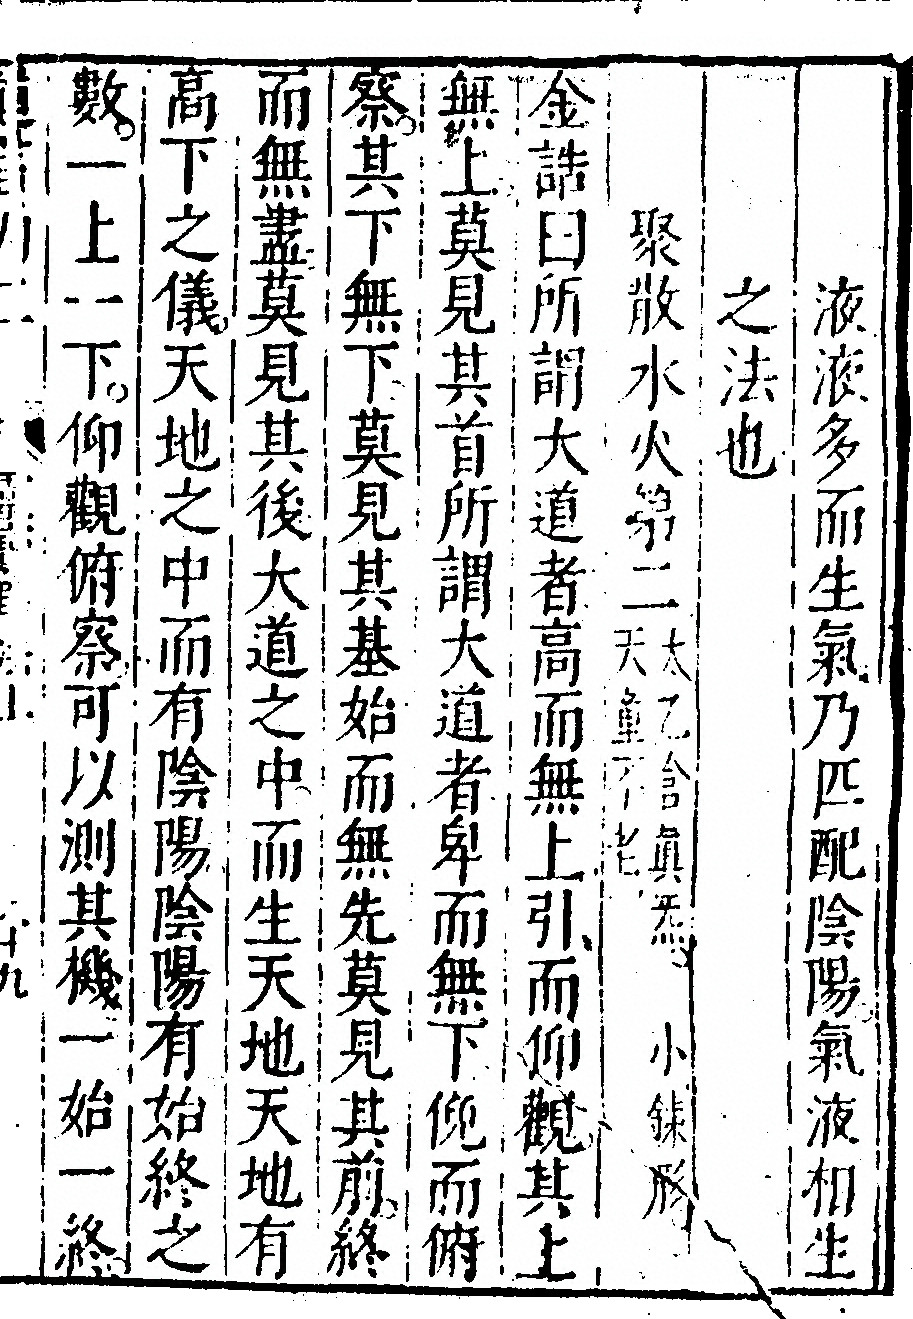 液液多而生氣乃匹配陰陽氣液相生
之法也
聚散水火第二
太乙含眞炁 小錬形
天童不老
金誥曰所謂大道者高而無上引而仰觀其上
無上莫見其首所謂大道者卑而無下俛而俯
察其下無下莫見其基始而無先莫見其前終
而無盡莫見其後大道之中而生天地天地有
高下之儀天地之中而有陰陽陰陽有始終之
數一上一下仰觀俯察可以測其機一始一終
十九